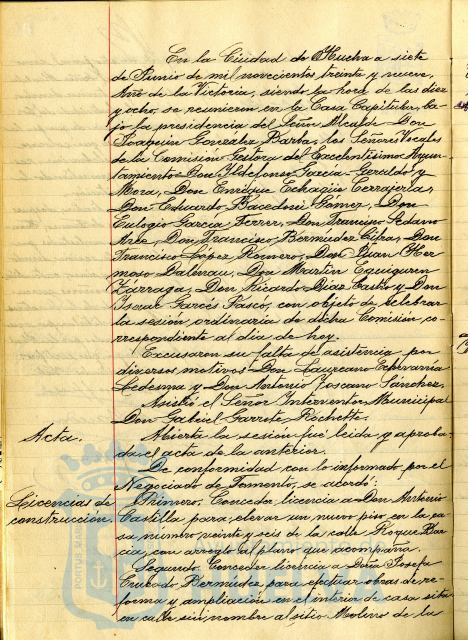 En la Ciudad de Huelva a siete
de Junio de mil novecientos treinta y nueve,
Año de la Victoria, siendo la hora de las diez
y ocho, se reunieron en la Casa Capitular, ba-
jo la presidencia del Señor Alcalde Don
Joaquin Gonzalez Barba, los Señores Vocales
de la Comision Gestora del Excelentísimo Ayun-
tamiento Don Ildefonso Garcia-Geraldo y
Mora, Don Enrique Echagüe Cerrajería,
Don Eduardo Bacedoni Gomez, Don
Eulogio García Ferrer, Don Francisco Sedano
Arce, Don Francisco Bermúdez Cifra, Don
Francisco López Romero, Don Juan Her-
moso Dalenau, Don Martin Eguiguren
Zárraga, Don Ricardo Diaz Castro y Don
Garcés Pascó, con objeto de celebrar
la sesión ordinaria de dicha Comisión co-
rrespondiente al dia de hoy.
Excusaron su falta de asistencia por
diversos motivos Don Laureano Echevarria
Ledesma y Don Antonio Toscano Sánchez.
Asistió el Señor Interventor Municipal
Don Gabriel Garrote,
Acta. Abierta la sesión fué leida y aproba-
da el acta de la anterior.
De conformidad con lo informado por el
Negociado de Fomento, se acordó:
Licencias de Primero. Conceder licencia a Don Antonio
construcción. Castilla para elevar un nuevo piso en la ca-
sa número veinte y seis de la calle Roque Bar-
cia, con arreglo al plano que acompaña.
Segundo. Conceder licencia a Doña Josefa
Bermúdez para efectuar obras de re-
forma y ampliación en el interior de casa sita
en calle sin nombre al sitio Molino de la